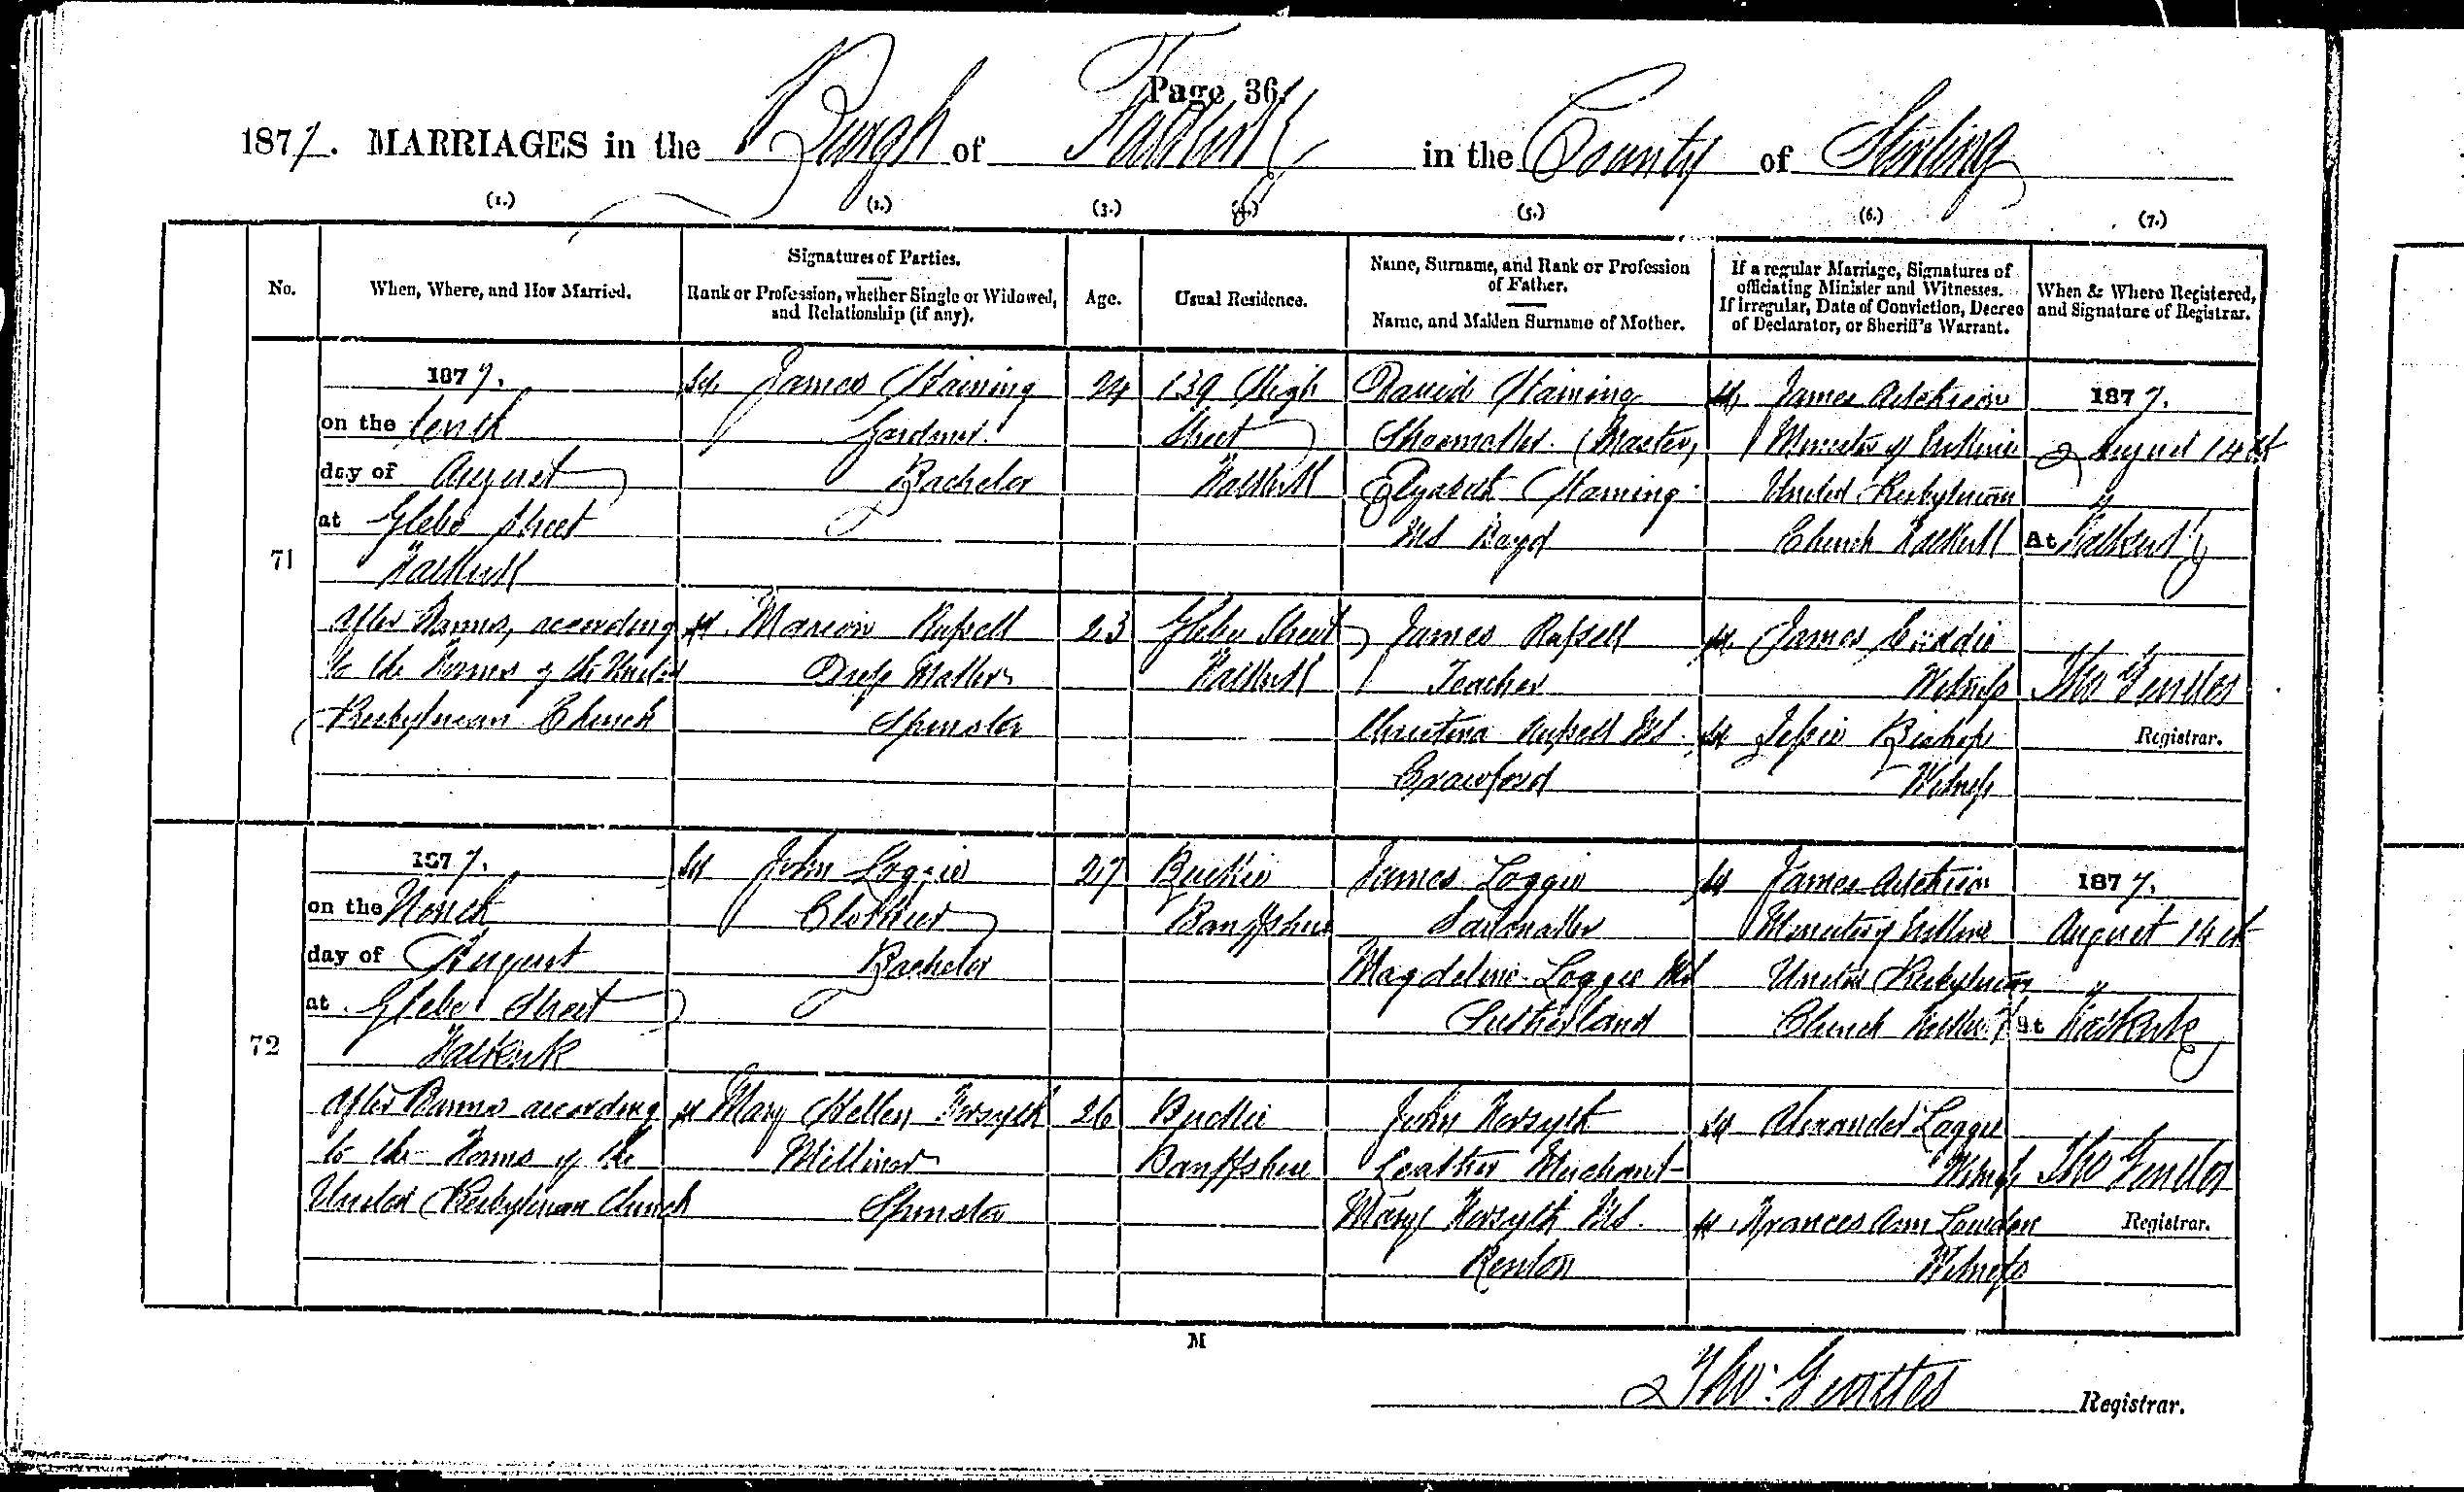 Page 36.
1877. MARRIAGES in the Burgh of Falkirk in the County of Stirling
(1.) (2.) (3.) (4.) (5.) (6.) (7.)
No.
When, Where, and How Married.
Signatures of Parties.
Rank or Profession, whether Single or Widowed, and Relationship (if any).
Age.
Usual Residence.
Name, Surname, and Rank or Profession of Father.
Name, and Maiden Surname of Mother.
If a regular Marriage, Signatures of officiating Minister and Witnesses.
If irregular, Date of Conviction, Decree of Declarator, or Sheriff's Warrant.
When & Where Registered, and Signature of Registrar.
71
1877.
on the tenth
day of August
at Glebe Street
Falkirk
After Banns, according
to the Forms of the United
Presbyterian Church
James Staining
Gardener
Bachelor
24
139 High
Street
Falkirk
David Staining
Shoemaker (Master)
Elizabeth Staining
MS Boyd
James Aitchison
Minister of Erskine
United Presbyterian
Church Falkirk
1877.
August 14th
At Falkirk
Marion Russell
Dress Maker
Spinster
23
Glebe Street
Falkirk
James Russell
Teacher
Christina Russell MS
Crawford
James
Witness
Jessie Bishop
Witness
Registrar.
72
1877.
on the Ninth
day of August
at Glebe Street
Falkirk
After Banns according
to the Forms of the
United Presbyterian Church
John Loggie
Clothier
Bachelor
27
Buckie
Banffshire
James Loggie
Sailmaker
Magdeline Loggie MS
Sutherland
James Aitchison
Minister of Erskine
United Presbyterian
Church Falkirk
1877.
August 14th
At Falkirk
Mary Hellen Forsyth
Milliner
Spinster
26
Buckie
Banffshire
John Forsyth
Leather Merchant
Mary Forsyth MS
Renton
Alexander Loggie
Witness
Frances Ann Louden
Witness
Registrar.
M
Registrar.